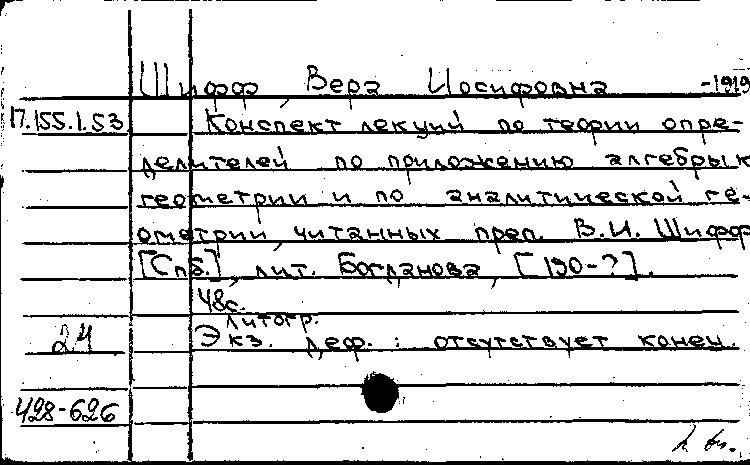 Шифф, Вера Иосифовна -1919
17.155.1.53 Конспект лекций по теории опре-
делителей по приложению алгебры к
геометрии и по аналитической ге-
ометрии, читанных преп. В.И. Шифф
[Спб.], лит. Богданова, [190-?].
48с.
Литогр.
24 Экз. деф.: отсутствует конец.
428-626